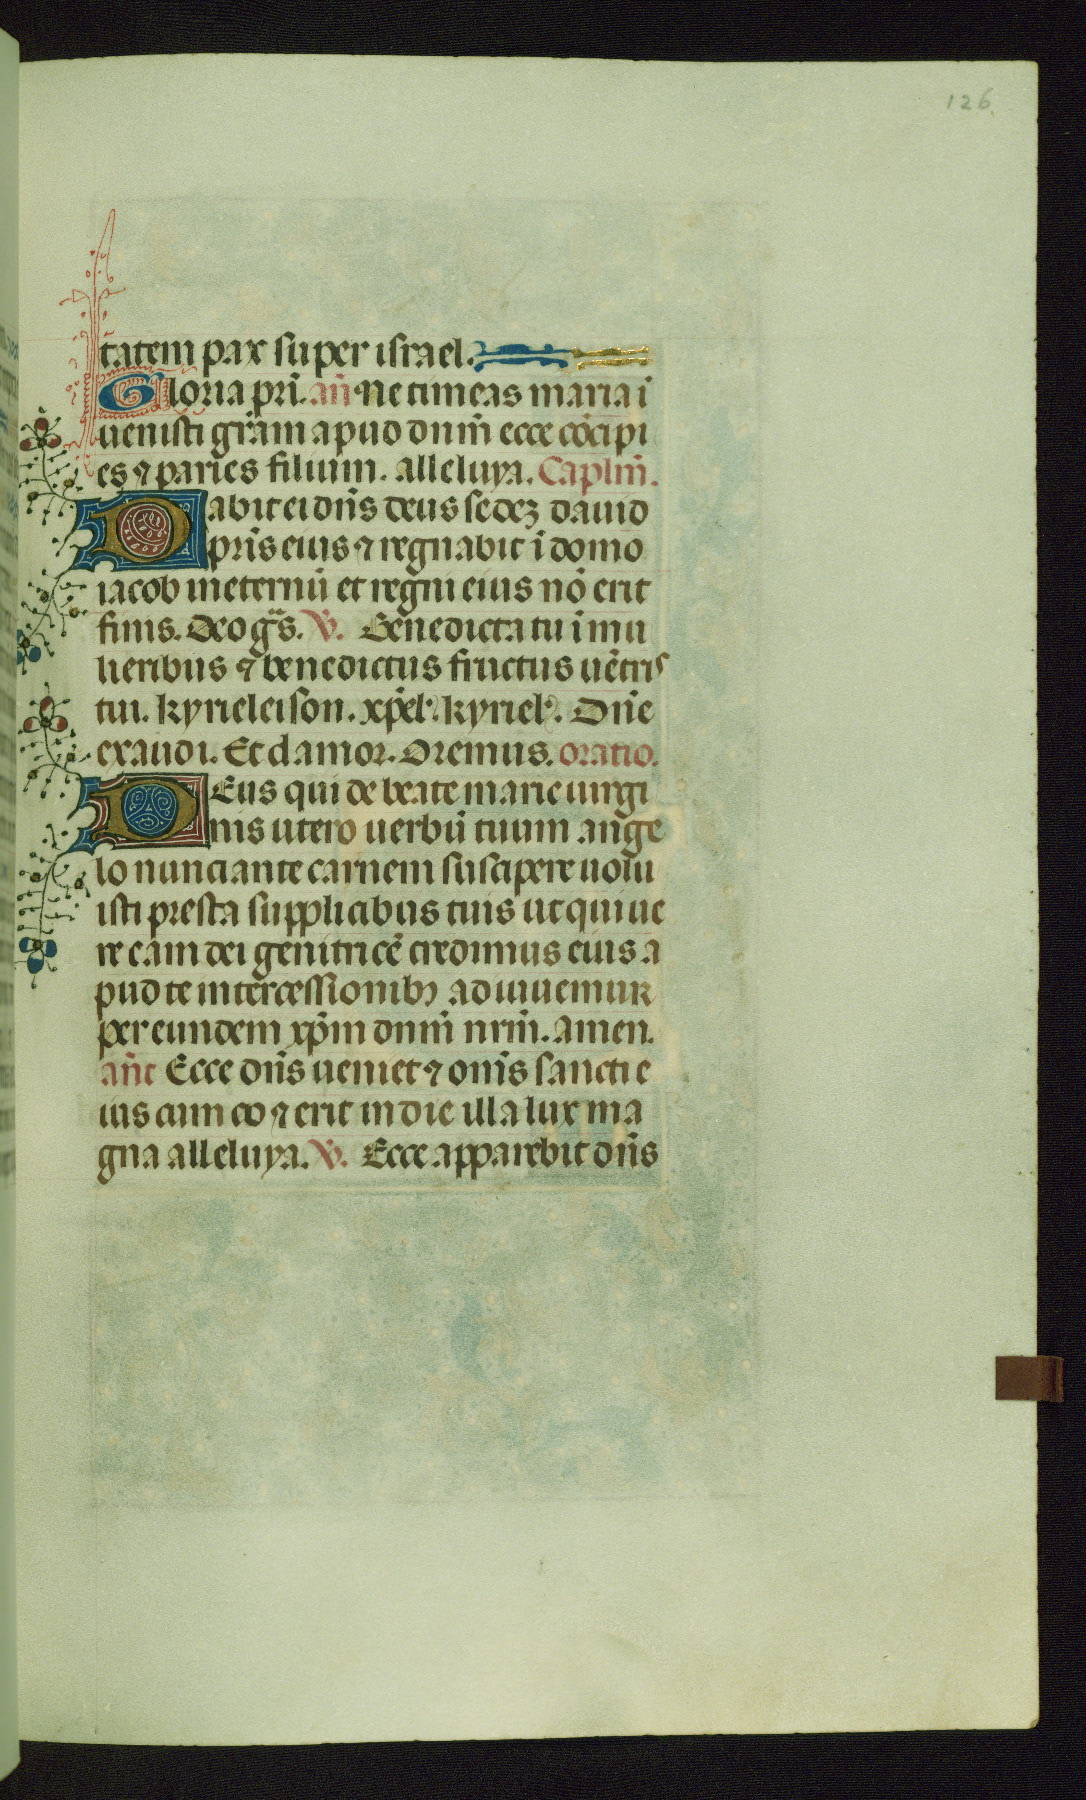 126
tatem pax super israel.
Gloria pri. añ. Ne timeas maria ī
uenisti gr̃am apud dnm̄ ecce cōcipi
es ⁊ paries filium. alleluya. Caplm̄.
Dabit ei dn̄s deus sedeʒ dauid
pr̄is eius ⁊ regnabit ī domo
iacob in eternū et regni eius nō erit
finis. Deo gr̃s. ℣. Benedicta tu ī mu
lieribus ⁊ benedictus fructus uētris
tui. kyrieleison. xp̄el'. kyriel'. Dn̄e
exaudi. Et clamor. Oremus. oratio.
DEus qui de beate marie uirgi
nis utero uerbū tuum ange
lo nunciante carnem suscipere uolu
isti presta supplicibus tuis ut qui ue
re eam dei genitricē credimus eius a
pud te intercessionibꝫ adiuuemur
per eundem xp̄m dnm̄ nrm̄. amen.
añt Ecce dn̄s ueniet ⁊ om̄s sancti e
ius cum eo ⁊ erit in die illa lux ma
gna alleluya. ℣. Ecce apparebit dn̄s